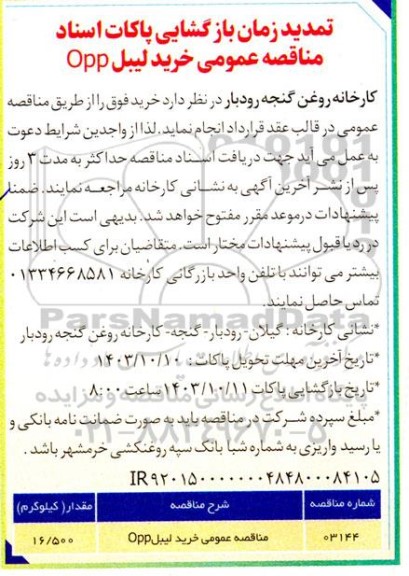 تمدید زمان بازگشایی پاکات اسناد
مناقصه عمومی خرید لیبل Opp
کارخانه روغن گنجه رودبار در نظر دارد خرید فوق را از طریق مناقصه
عمومی در قالب عقد قرارداد انجام نماید. لذا از واجدین شرایط دعوت
به عمل می آید جهت دریافت اسناد مناقصه حداکثر به مدت ۳ روز
پس از نشر آخرین آگهی به نشانی کارخانه مراجعه نمایند. ضمنا
پیشنهادات درموعد مقرر مفتوح خواهد شد. بدیهی است این شرکت
در رد یا قبول پیشنهادات مختار است. متقاضیان برای کسب اطلاعات
بیشتر می توانند با تلفن واحد بازرگانی کارخانه ۰۱۳۳۴۶۶۸۵۸۱
تماس حاصل نمایند.
*نشانی کارخانه : گیلان- رودبار- گنجه- کارخانه روغن گنجه رودبار
*تاریخ آخرین مهلت تحویل پاکات : ۱۴۰۳/۱۰/۱۰
*تاریخ بازگشایی پاکات ۱۴۰۳/۱۰/۱۱ ساعت ۸:۰۰
*مبلغ سپرده شرکت در مناقصه باید به صورت ضمانت نامه بانکی و
یا رسید واریزی به شماره شبا بانک سپه روغنکشی خرمشهر باشد .
IR۹۲۰۱۵۰۰۰۰۰۰۰۴۸۴۸۰۰۰۸۴۱۰۵
شماره مناقصه شرح مناقصه مقدار( کیلوگرم)
۰۳۱۴۴ مناقصه عمومی خرید لیبل Opp ۱۶/۵۰۰
ParsNamadData